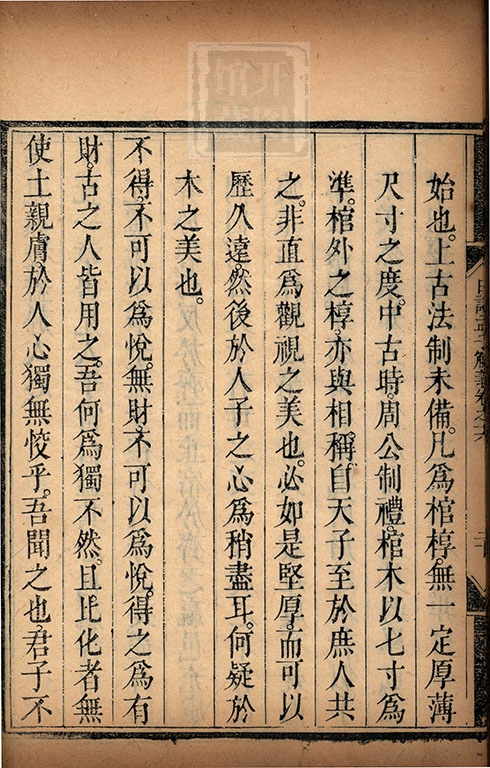 始也。上古法制未備。凡爲棺椁。無一定厚薄
尺寸之度。中古時。周公制禮。棺木以七寸爲
準。棺外之椁。亦與相稱。自天子至於庶人共
之。非直爲觀視之美也。必如是堅厚。而可以
歷久遠。然後於人子之心爲稍盡耳。何疑於
木之美也。
不得。不可以爲悅。無財不可以爲悅。得之爲有
財。古之人皆用之。吾何爲獨不然。且比化者無
使土親膚。於人心獨無恔乎。吾聞之也。君子不